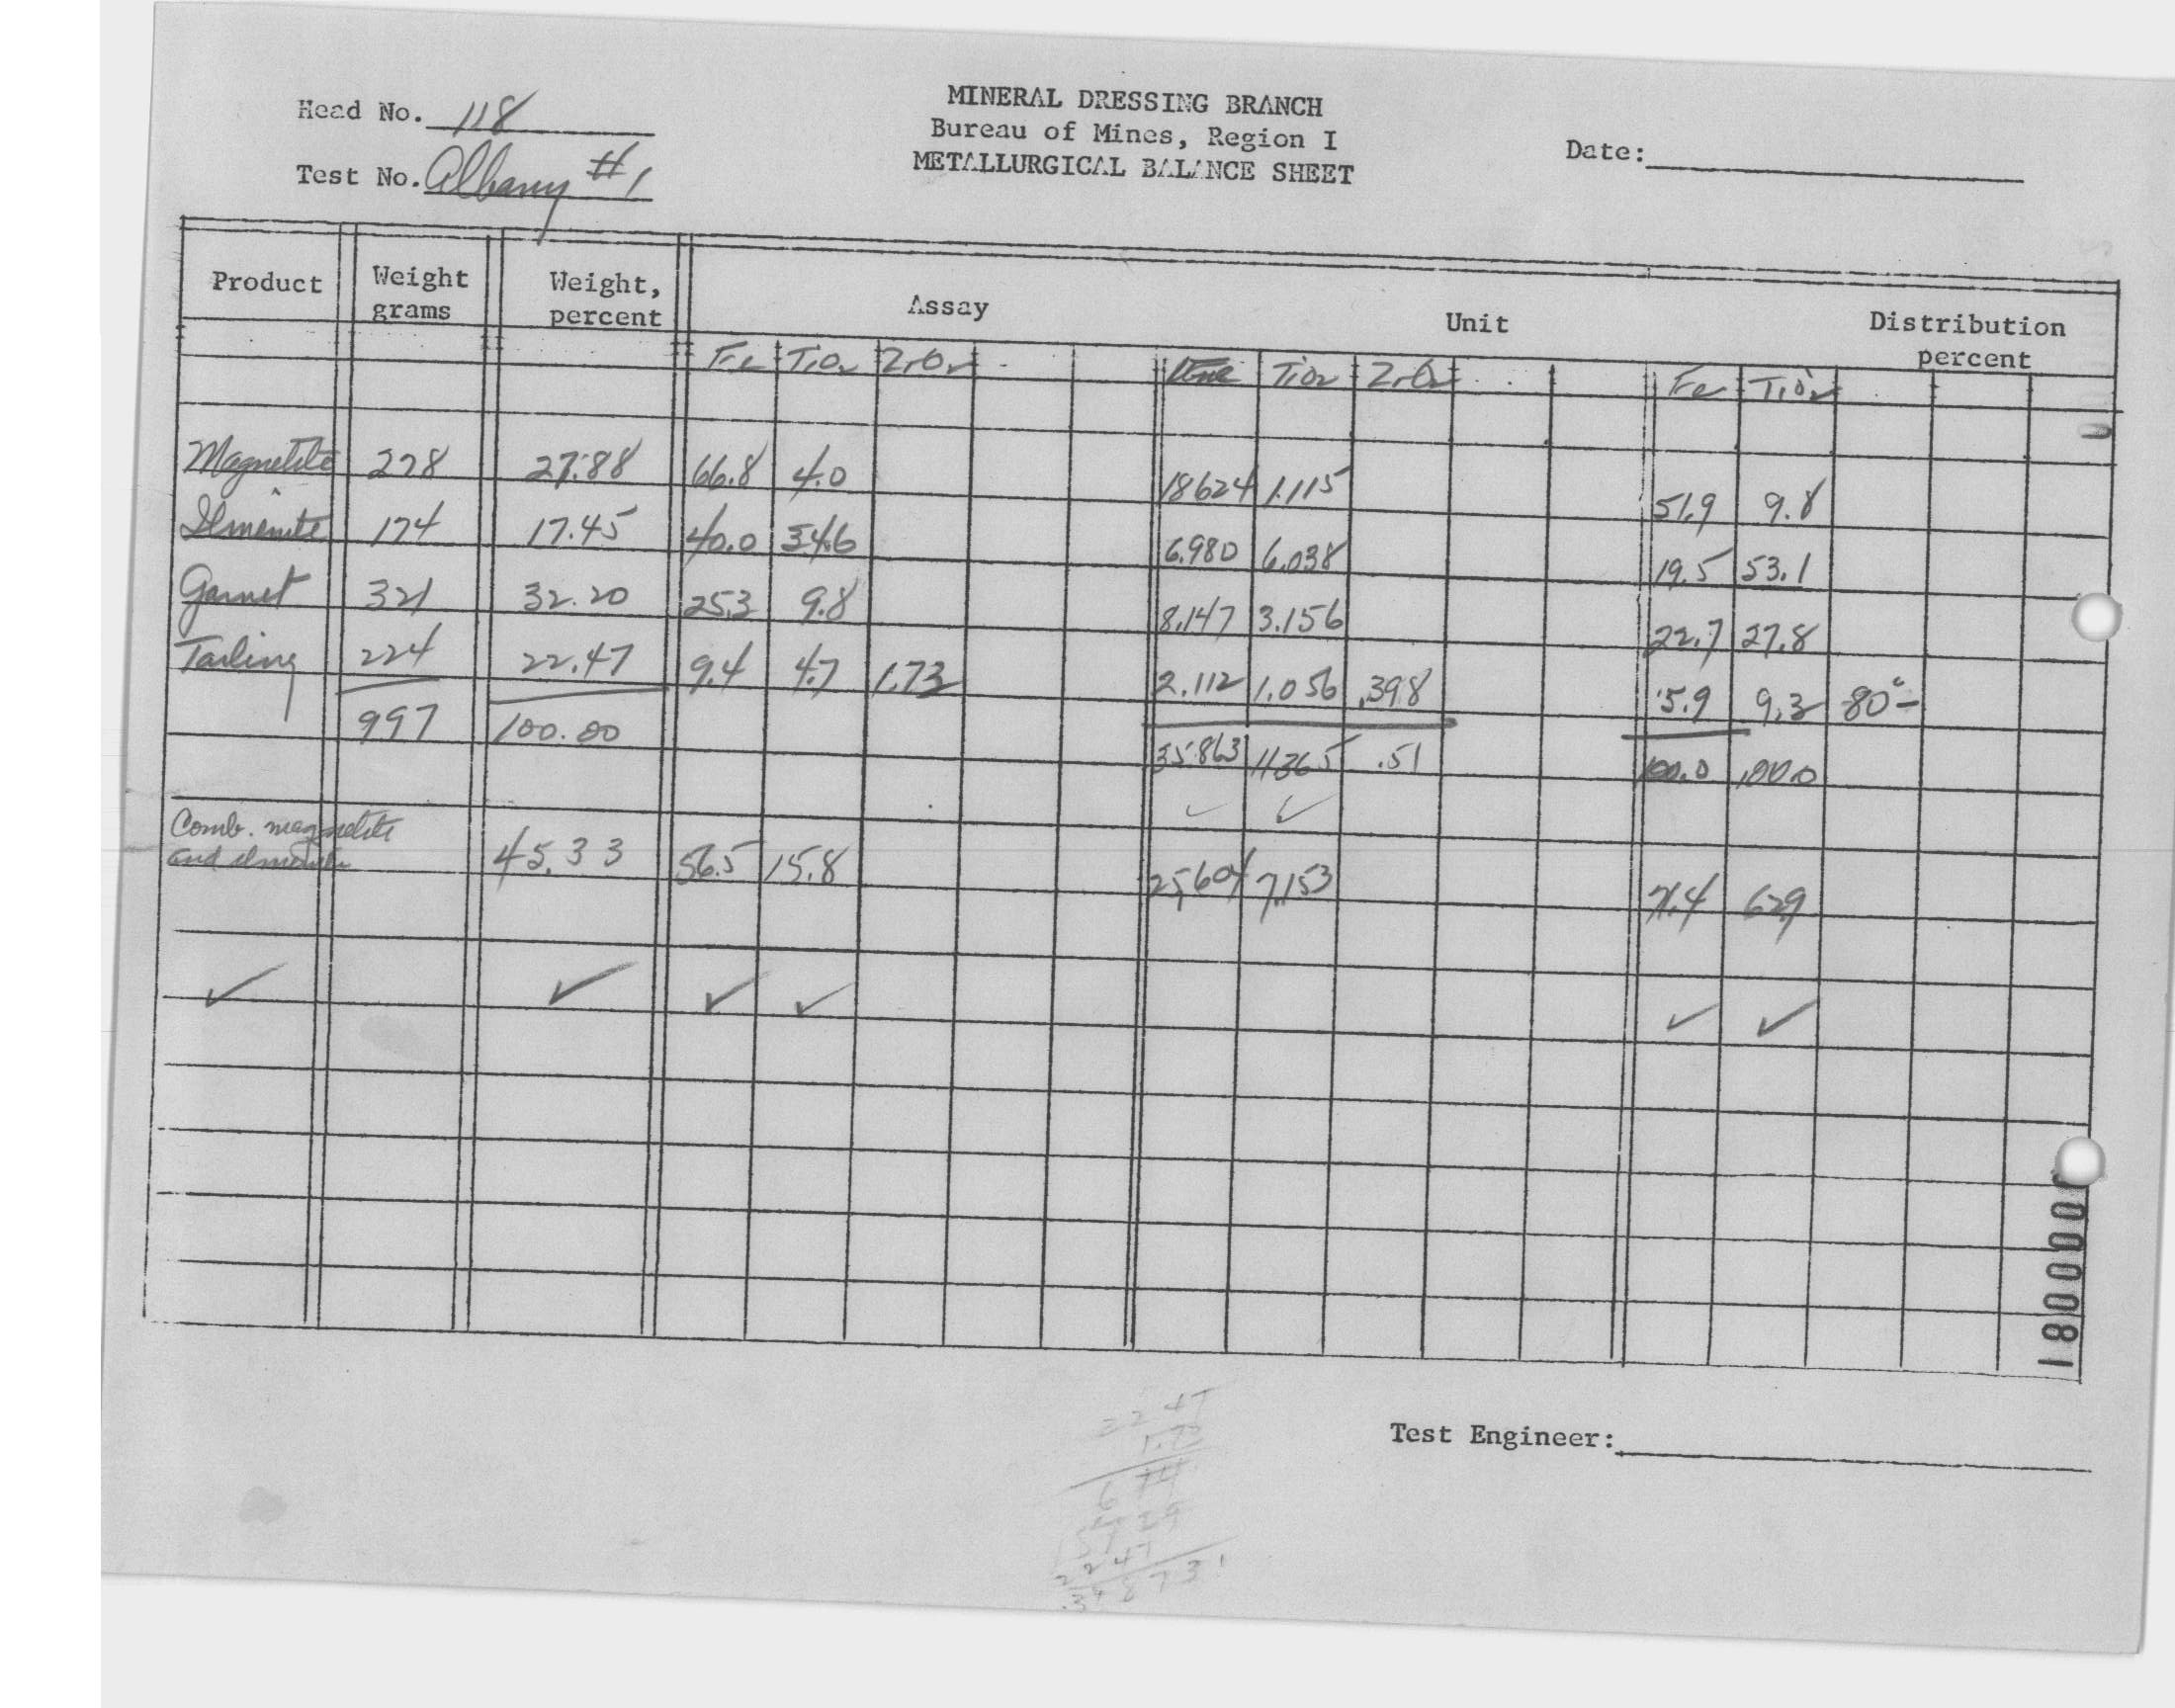 MINERAL DRESSING BRANCH
Head No. 118
Bureau of Mines, Region I
Date:
METALLURGICAL BALANCE SHEET
Test No. Albany #1
Product Weight grams Weight, percent Assay Unit Distribution percent
Fe TiO2 ZrO2 TiO2 ZrO2 Fe TiO2
Magnetite 278 27.88 66.8 4.0 18624 1.115 51.9 9.8
Ilmenite 174 17.45 40.0 34.6 6.980 6.038 19.5 53.1
Garnet 321 32.20 25.3 9.8 8.147 3.156 22.7 27.8
Tailing 224 22.47 9.4 4.7 1.73 2.112 1.056 .398 5.9 9.3 80-
997 100.00 35.863 11365 .51 100.0 100.0
Comb. magnetite
and ilmenite 45.33 56.5 15.8 25,604 7.153 71.4 62.9
✓ ✓
✓ ✓ ✓ ✓ ✓ ✓
Test Engineer:
22 47
1.73
6 741
157 29
22 47
.38 8 7 3 1